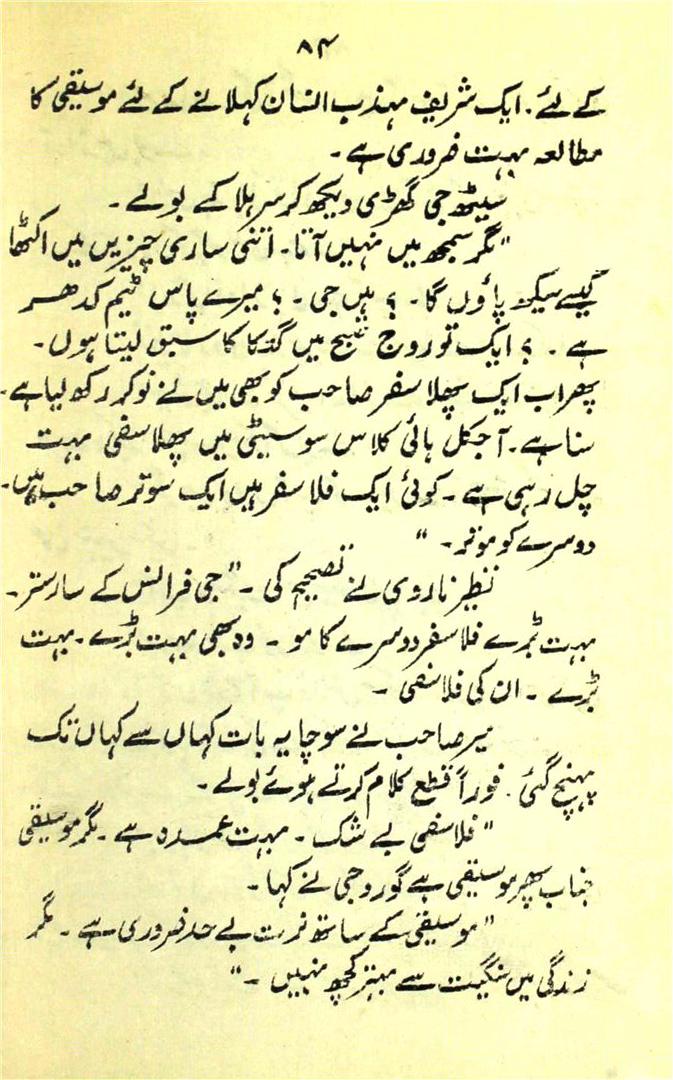 ۸۴
کے لئے۔ ایک شریف مہذب انسان کہلانے کے لئے موسیقی کا
مطالعہ بہت ضروری ہے۔
سیٹھ جی گھڑی دیکھ کر سر ہلا کے بولے۔
"مگر سمجھ میں نہیں آتا۔ اتنی ساری چیزیں میں اکٹھا
کیسے سیکھ پاؤں گا۔ ؟ ہیں جی۔ ؟ میرے پاس ٹیم کدھر
ہے۔ ؟ ایک تو روج صبح میں گدکا کا سبق لیتا ہوں۔
پھر اب ایک پھلاسفر صاحب کو بھی میں نے نوکر رکھ لیا ہے۔
سنا ہے۔ آجکل ہائی کلاس سوسیٹی میں پھلاسفی بہت
چل رہی ہے۔ کوئی ایک فلاسفر ہیں ایک سوتر صاحب ہیں۔
دوسرے کو موتر۔ "
نظیر ناروی نے تصحیح کی۔ "جی فرانس کے سارتر۔
بہت بڑے فلاسفر دوسرے کا مو ۔ وہ بھی بہت بڑے۔ بہت
بڑے ۔ ان کی فلاسفی ۔
میر صاحب نے سوچا یہ بات کہاں سے کہاں تک
پہنچ گئی۔ فوراً قطع کلام کرتے ہوئے بولے۔
"فلاسفی بے شک۔ بہت عمدہ ہے۔ مگر موسیقی
جناب پھر موسیقی ہے گورو جی نے کہا۔
"موسیقی کے ساتھ نرت بے حد ضروری ہے۔ مگر
زندگی میں سنگیت سے بہتر کچھ نہیں ۔"